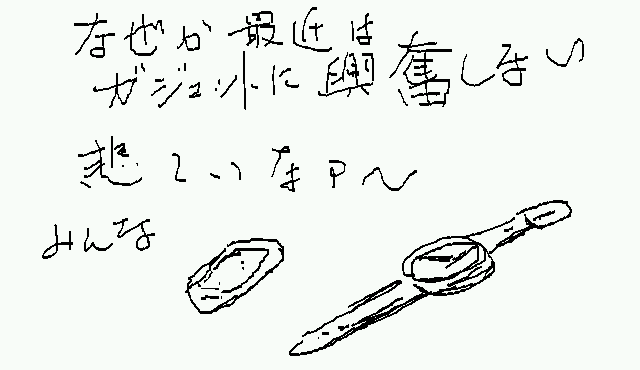 なぜか最近は
ガジェットに興奮しない
悲しいなァ〜
みんな